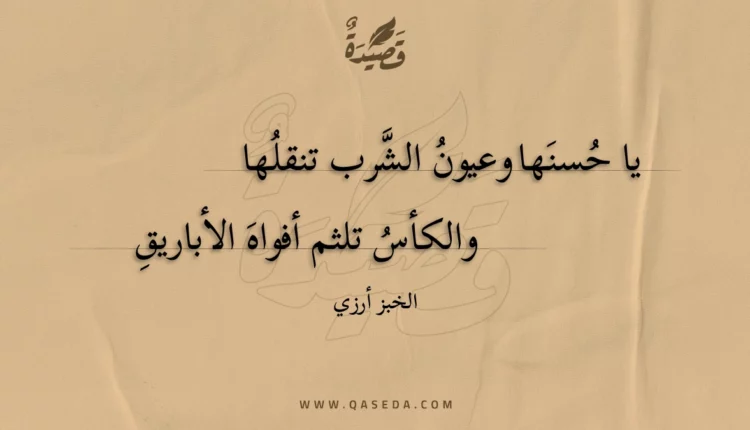 قَصِيْدَةٌ
يا حُسنَها وعيونُ الشَّرب تنقلُها
والكأسُ تلثم أفواهَ الأباريقِ
الخبز أرزي
WWW.QASEDA.COM